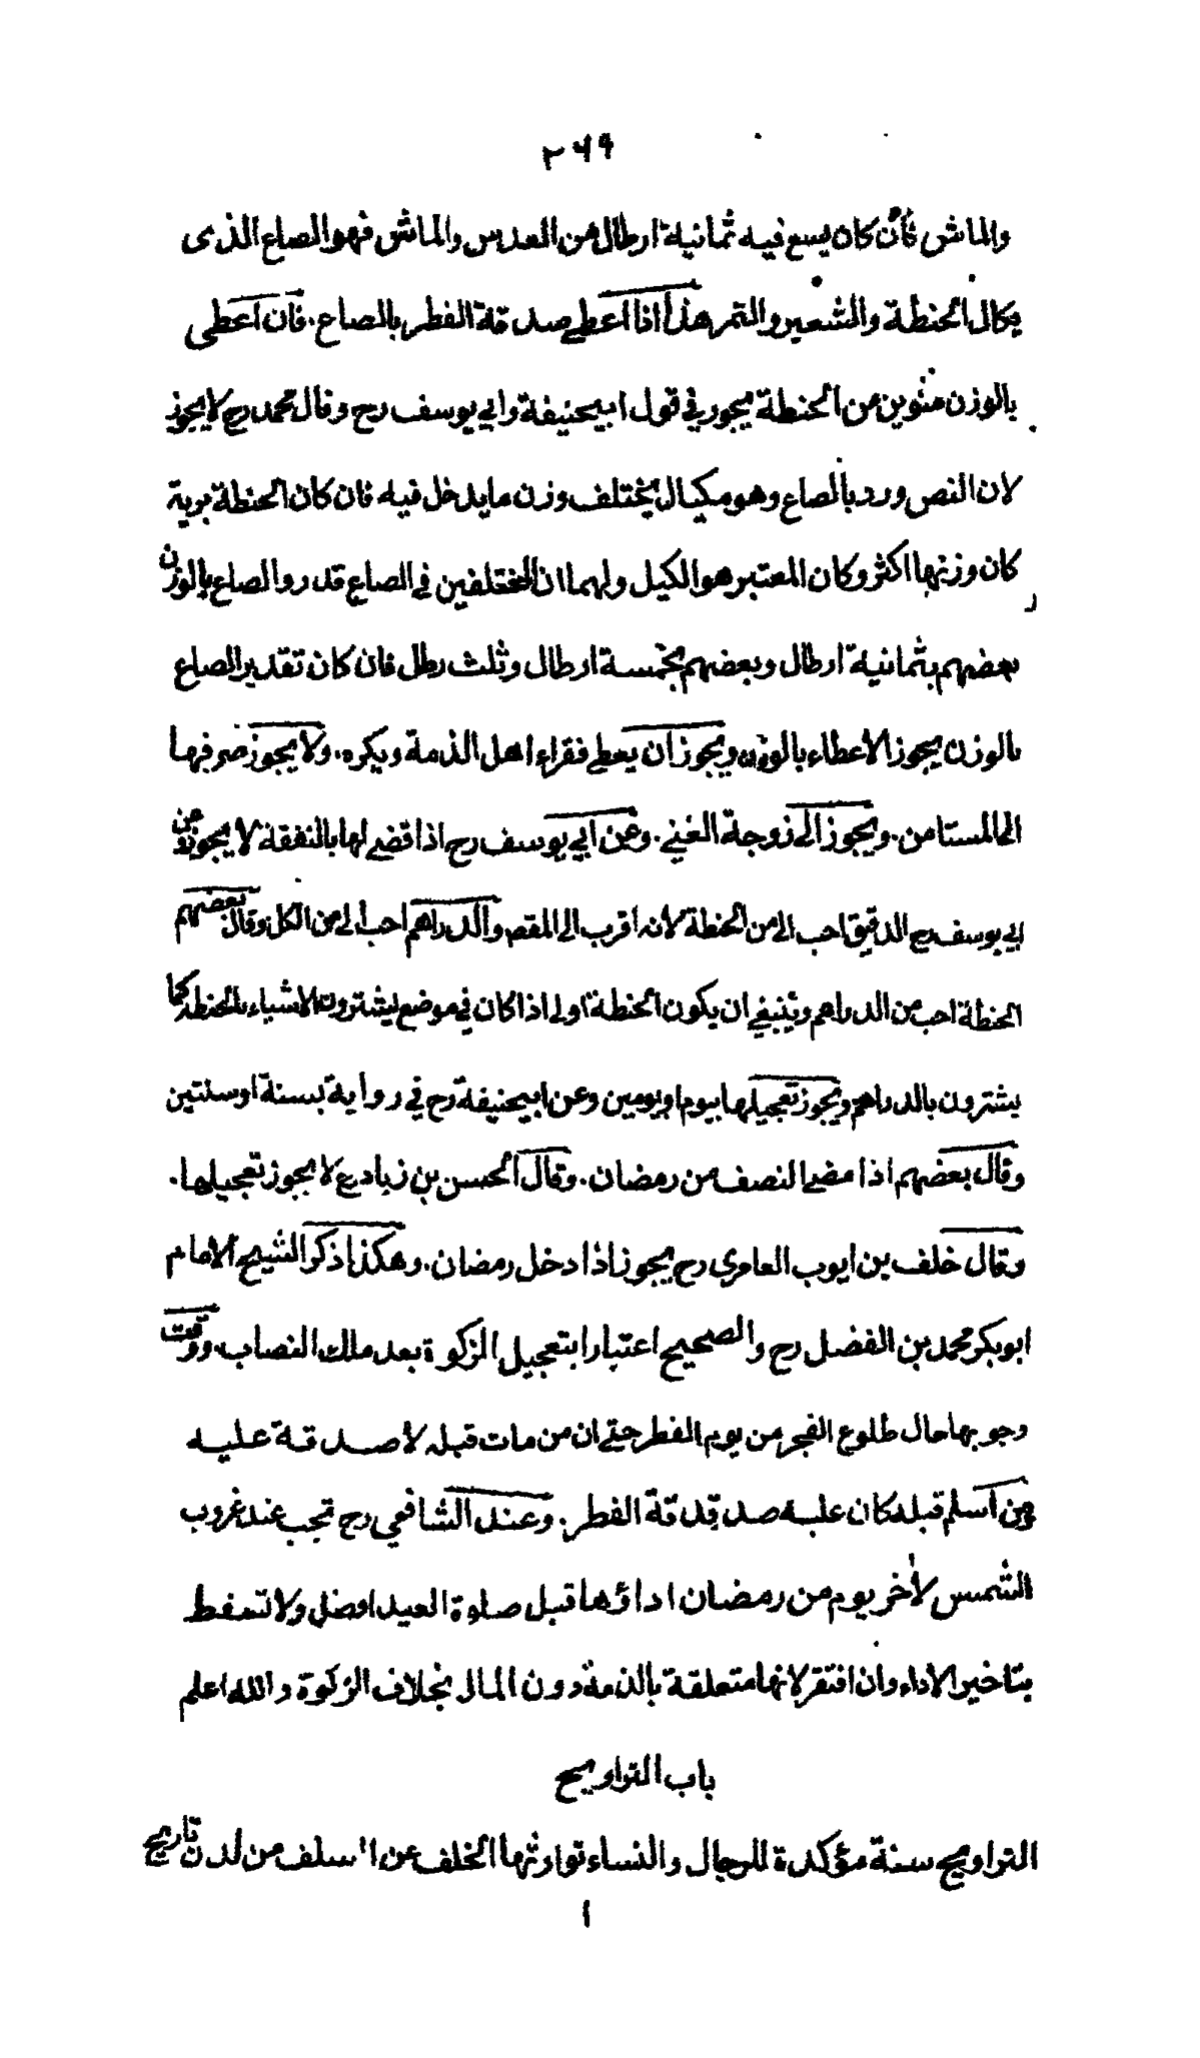 ٢٦٩
والماش فأن كان يسع فيه ثمانية ارطال من العدس والماش فهو الصاع الذى
يكال الحنطة والشعير والتمر هذا اذا اعطى صدقة الفطر بالصاع. فان اعطى
بالوزن منوين من الحنطة يجوز في قول ابيحنيفة وابي يوسف رح وقال محمد رح لا يجوز
لان النص ورد بالصاع وهو مكيال يختلف وزن ما يدخل فيه فان كان الحنطة برية
كان وزنها اكثر وكان المعتبر هو الكيل ولهما ان المختلفين في الصاع قدروا الصاع بالوزن
بعضهم بثمانية ارطال وبعضهم بخمسة ارطال وثلث رطل فان كان تقدير الصاع
بالوزن يجوز الاعطاء بالوزن ويجوز ان يعطى فقراء اهل الذمة ويكره. ولا يجوز صرفها
الى المستامن. ويجوز الى زوجة الغني. وعن ابي يوسف رح اذا قضى لها بالنفقة لا يجوز وعن
ابي يوسف رح الدقيق احب الى من الحنطة لانه اقرب الى المقصد والدراهم احب الى من الكل وقال بعضهم
الحنطة احب من الدراهم وينبغي ان يكون الحنطة اولى اذا كان في موضع يشترون الاشياء بالحنطة كما
يشترون بالدراهم ويجوز تعجيلها بيوم او يومين وعن ابيحنيفة رح في رواية بسنة او سنتين
وقال بعضهم اذا مضى النصف من رمضان. وقال الحسن بن زياد رح لا يجوز تعجيلها.
وقال خلف بن ايوب العامري رح يجوز اذا دخل رمضان. وهكذا ذكر الشيخ الامام
ابو بكر محمد بن الفضل رح والصحيح اعتبارا بتعجيل الزكوة بعد ملك النصاب. ووقت
وجوبها حال طلوع الفجر من يوم الفطر حتى ان من مات قبله لا صدقة عليه
ومن اسلم قبله كان عليه صدقة الفطر. وعند الشافعي رح تجب عند غروب
الشمس لاخر يوم من رمضان اداؤها قبل صلوة العيد افضل ولا تسقط
بتاخير الاداء وان افتقر لانها متعلقة بالذمة دون المال بخلاف الزكوة والله اعلم
باب التراويح
التراويح سنة مؤكدة للرجال والنساء توارثها الخلف عن السلف من لدن تاريخ
ا